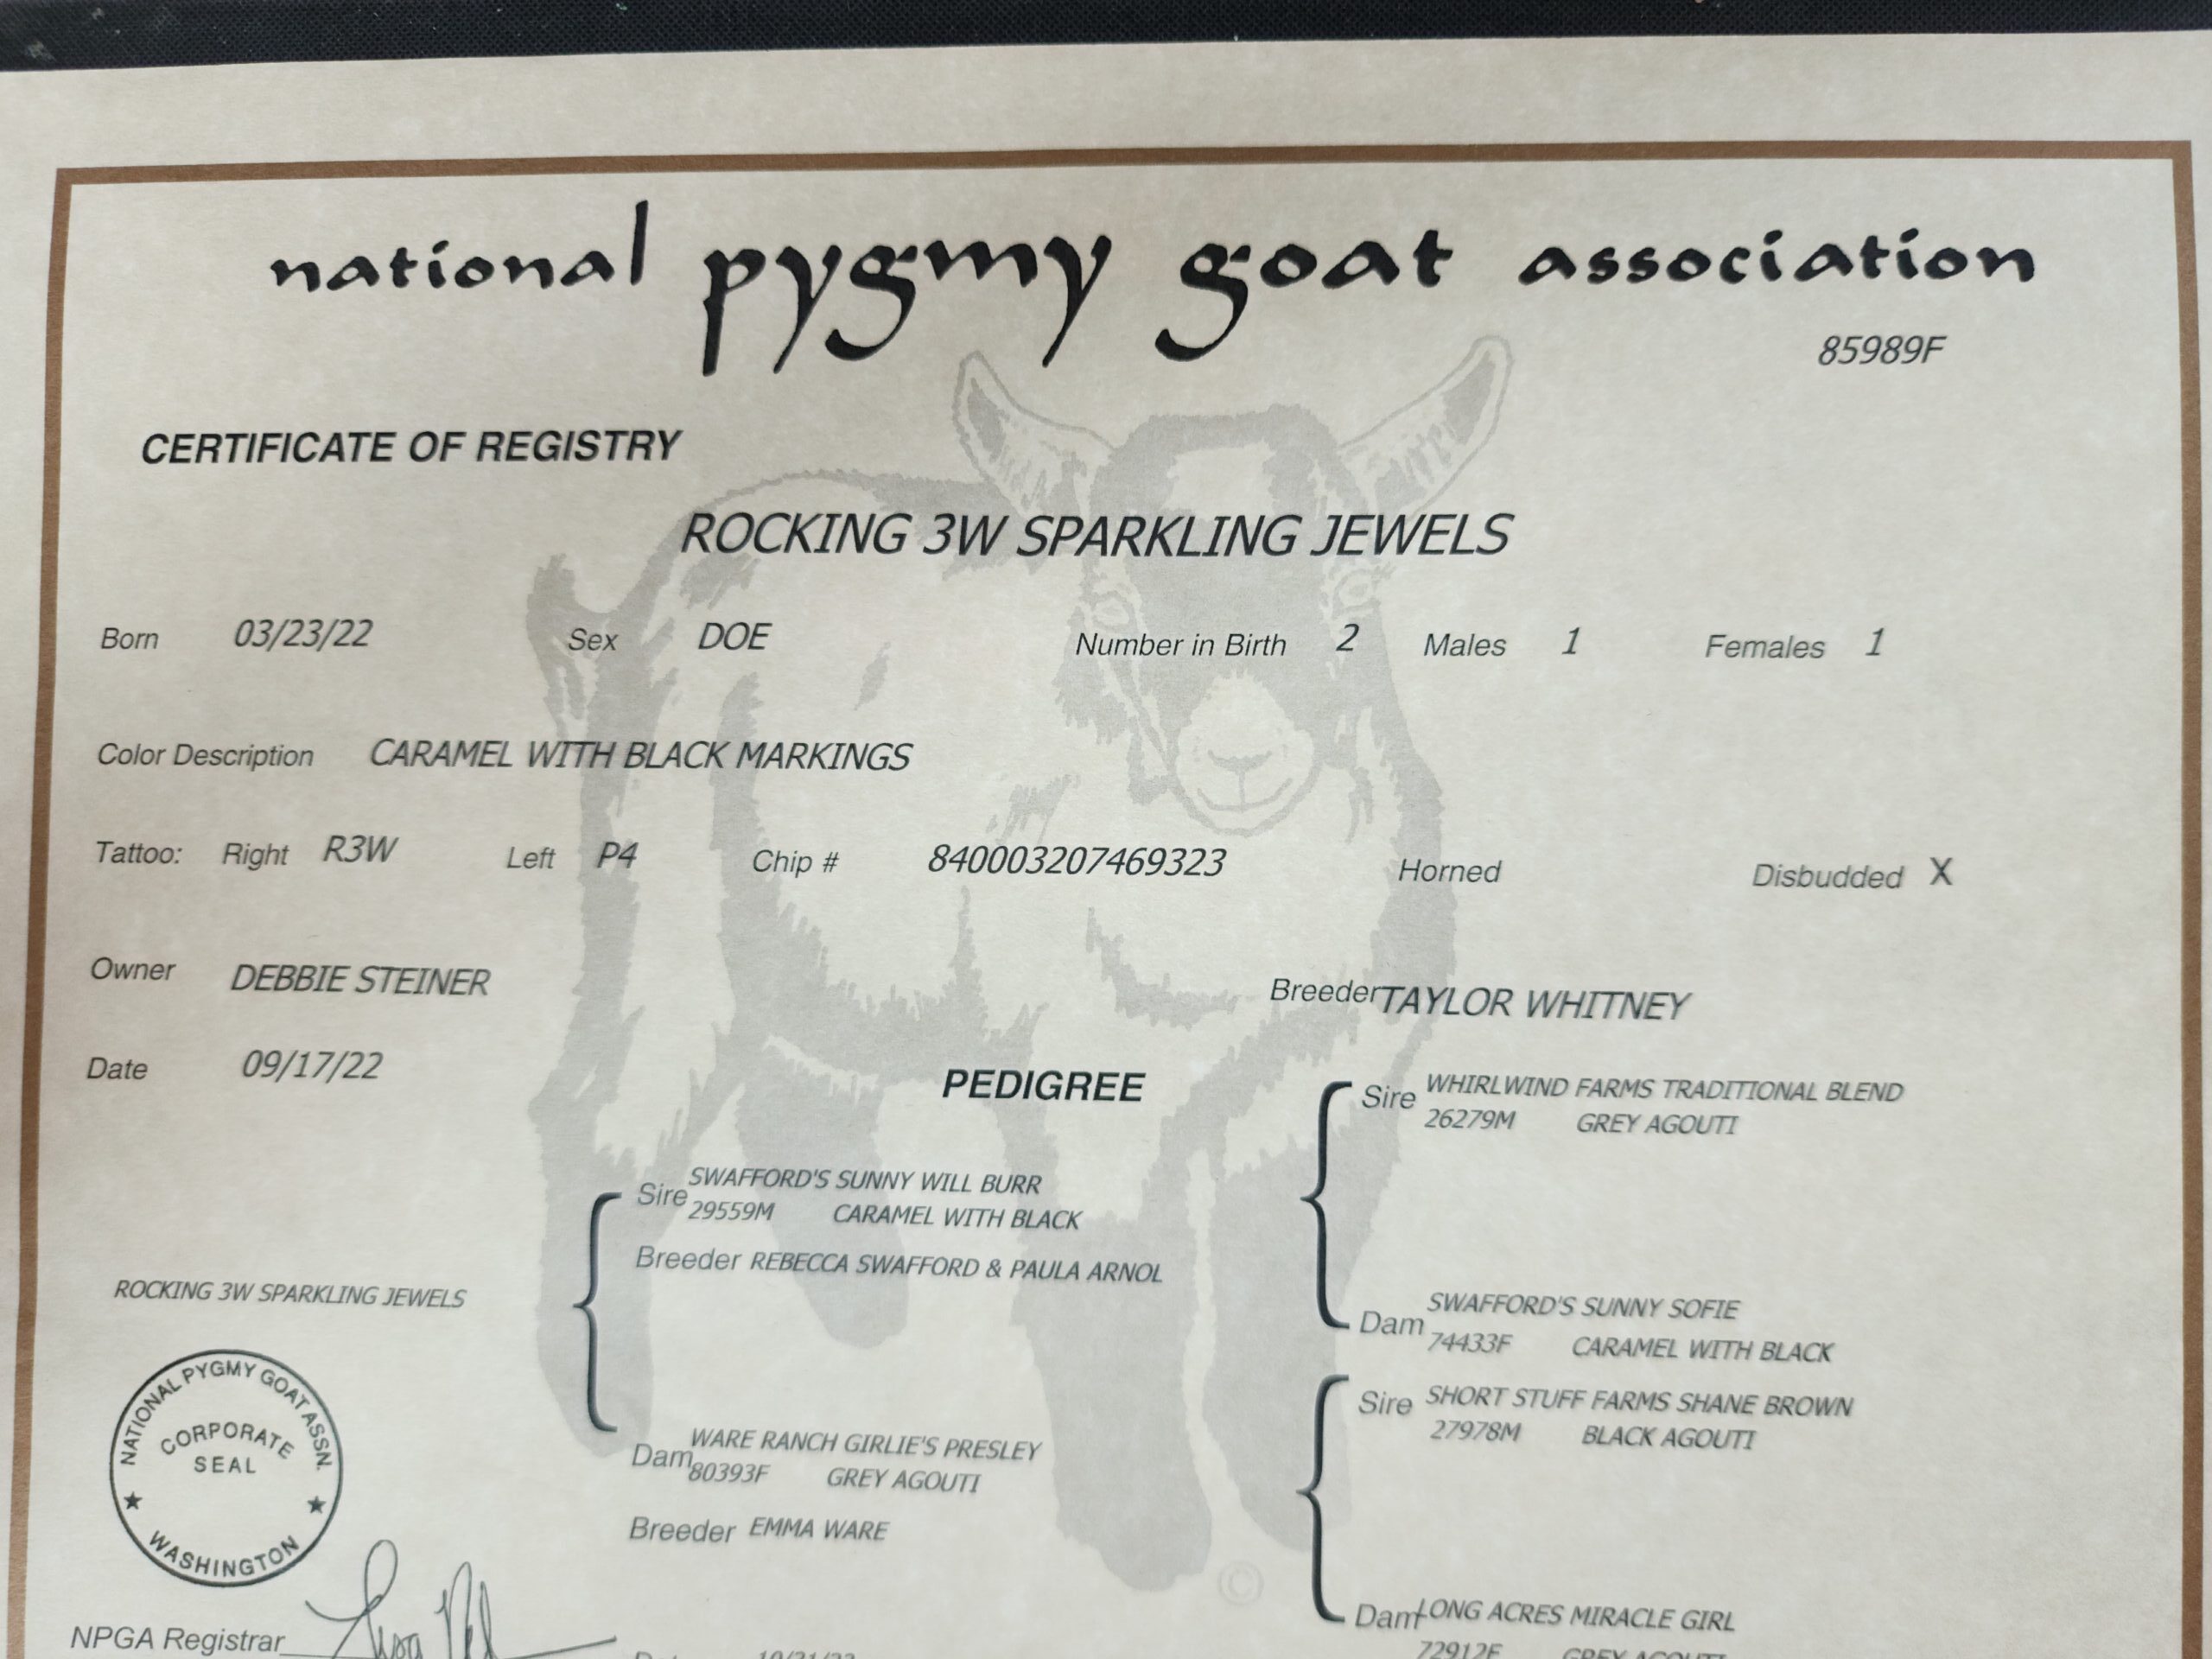 national pygmy goat association
85989F
CERTIFICATE OF REGISTRY
ROCKING 3W SPARKLING JEWELS
Born 03/23/22 Sex DOE Number in Birth 2 Males 1 Females 1
Color Description CARAMEL WITH BLACK MARKINGS
Tattoo: Right R3W Left P4 Chip # 840003207469323 Horned Disbudded X
Owner DEBBIE STEINER Breeder TAYLOR WHITNEY
Date 09/17/22
PEDIGREE
Sire WHIRLWIND FARMS TRADITIONAL BLEND
26279M GREY AGOUTI
Sire SWAFFORD'S SUNNY WILL BURR
29559M CARAMEL WITH BLACK
Breeder REBECCA SWAFFORD & PAULA ARNOL
ROCKING 3W SPARKLING JEWELS
Dam SWAFFORD'S SUNNY SOFIE
74433F CARAMEL WITH BLACK
Sire SHORT STUFF FARMS SHANE BROWN
27978M BLACK AGOUTI
Dam WARE RANCH GIRLIE'S PRESLEY
80393F GREY AGOUTI
Breeder EMMA WARE
NATIONAL PYGMY GOAT ASSN.
CORPORATE
SEAL
WASHINGTON
©
Dam LONG ACRES MIRACLE GIRL
72912F GREY AGOUTI
NPGA Registrar